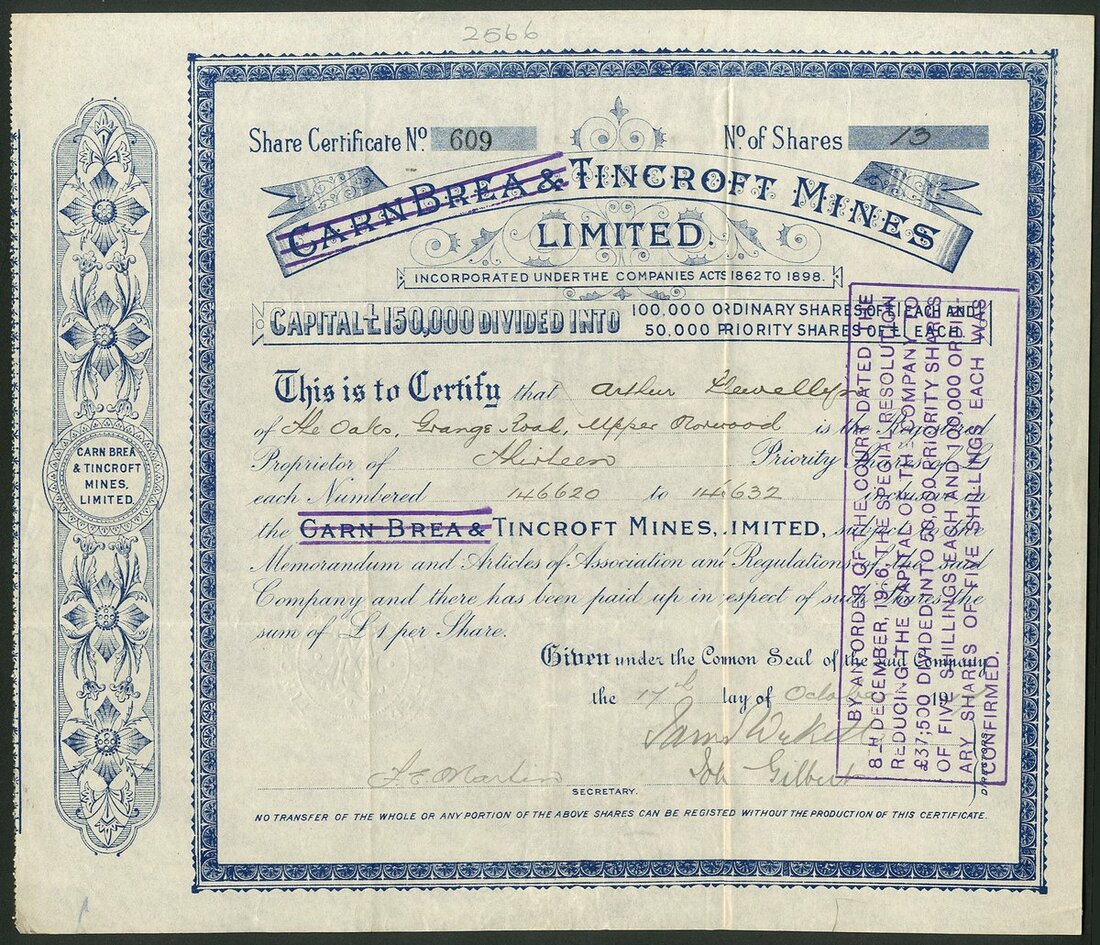 2566
Share Certificate No. 609
No. of Shares 13
CARN BREA & TINCROFT MINES
LIMITED.
INCORPORATED UNDER THE COMPANIES ACTS 1862 TO 1898.
CAPITAL £150,000 DIVIDED INTO
100,000 ORDINARY SHARES OF £1 EACH AND
50,000 PRIORITY SHARES OF £1 EACH
This is to Certify that Arthur Llewellyn
of The Oaks, Grange Road, Upper Norwood is the Registered
Proprietor of Thirteen Priority Shares of £1
each Numbered 146620 to 146632 inclusive in
the CARN BREA & TINCROFT MINES, IMITED, subject to the
Memorandum and Articles of Association and Regulations of the said
Company and there has been paid up in espect of such Shares the
sum of £1 per Share.
Given under the Comon Seal of the said Company
the 17th day of October 19
J. E. Martin
SECRETARY.
Gilbert
DIRECTORS
NO TRANSFER OF THE WHOLE OR ANY PORTION OF THE ABOVE SHARES CAN BE REGISTED WITHOUT THE PRODUCTION OF THIS CERTIFICATE.
CARN BREA
& TINCROFT
MINES,
LIMITED.
BY AN ORDER OF THE COURT DATED THE
8TH DECEMBER, 1916, THE SPECIAL RESOLUTION
REDUCING THE CAPITAL OF THE COMPANY TO
£37,500 DIVIDED INTO 50,000 PRIORITY SHARES
OF FIVE SHILLINGS EACH AND 100,000 ORDIN-
ARY SHARES OF FIVE SHILLINGS EACH WAS
CONFIRMED.